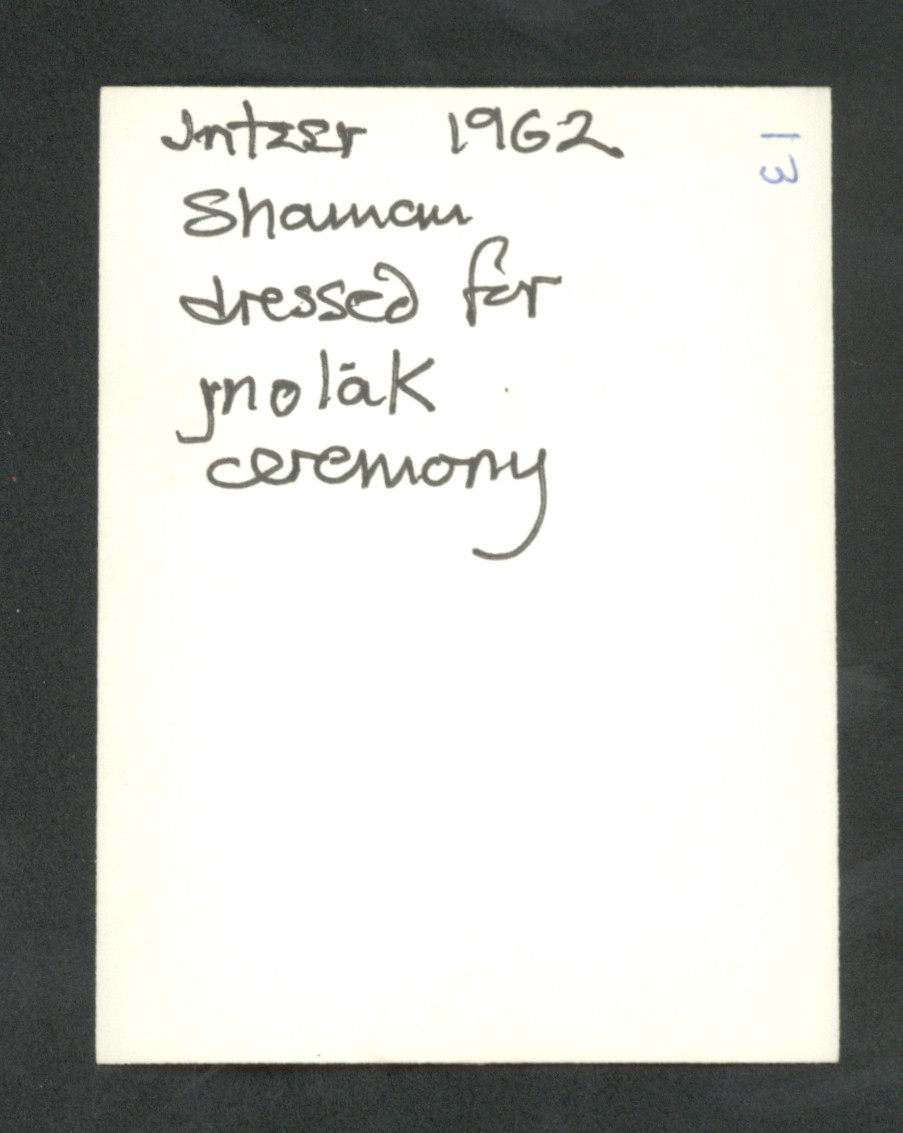 Jntzer 1962
Shaman
dressed for
jnoläk
ceremony
13